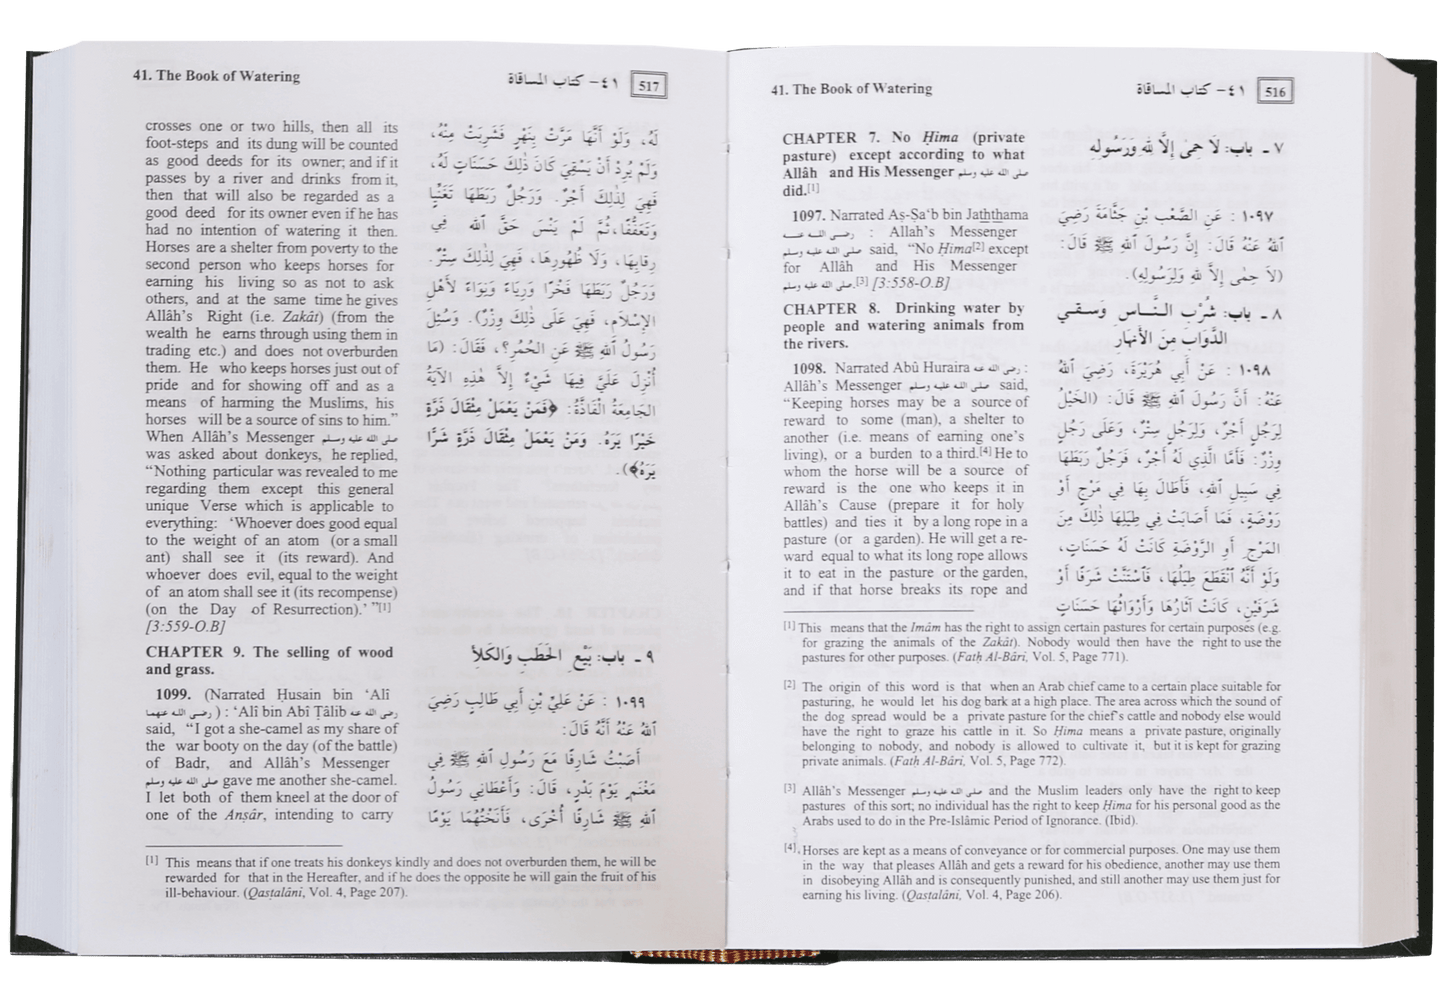 41. The Book of Watering
٤١- كتاب المساقاة
516
CHAPTER 7. No Ḥima (private
pasture) except according to what
Allâh and His Messenger صلى الله عليه وسلم
did.[1]
1097. Narrated Aṣ-Ṣa‘b bin Jaththama
رضى الله عنه : Allah's Messenger
صلى الله عليه وسلم said, “No Ḥima[2] except
for Allâh and His Messenger
صلى الله عليه وسلم.[3] [3:558-O.B]
CHAPTER 8. Drinking water by
people and watering animals from
the rivers.
1098. Narrated Abû Huraira رضى الله عنه :
Allâh's Messenger صلى الله عليه وسلم said,
“Keeping horses may be a source of
reward to some (man), a shelter to
another (i.e. means of earning one's
living), or a burden to a third.[4] He to
whom the horse will be a source of
reward is the one who keeps it in
Allâh's Cause (prepare it for holy
battles) and ties it by a long rope in a
pasture (or a garden). He will get a re-
ward equal to what its long rope allows
it to eat in the pasture or the garden,
and if that horse breaks its rope and
٧ ـ باب: لَا حِمَى إِلَّا لِلهِ وَرَسُولِهِ
١٠٩٧ : عَنِ الصَّعْبِ بْنِ جَثَّامَةَ رَضِيَ
اللهُ عَنْهُ قَالَ: إِنَّ رَسُولَ اللهِ ﷺ قَالَ:
(لَا حِمَى إِلَّا لِلهِ وَلِرَسُولِهِ).
٨ ـ باب: شُرْبِ النَّاسِ وَسَقيِ
الدَّوَابِّ مِنَ الأَنهَارِ
١٠٩٨ : عَنْ أَبِي هُرَيْرَةَ، رَضِيَ اللهُ
عَنْهُ: أَنَّ رَسُولَ اللهِ ﷺ قَالَ: (الخَيْلُ
لِرَجُلٍ أَجْرٌ، وَلِرَجُلٍ سِتْرٌ، وَعَلَى رَجُلٍ
وِزْرٌ: فَأَمَّا الَّذِي لَهُ أَجْرٌ، فَرَجُلٌ رَبَطَهَا
فِي سَبِيلِ اللهِ، فَأَطَالَ بِهَا فِي مَرْجٍ أَوْ
رَوْضَةٍ، فَمَا أَصَابَتْ فِي طِيَلِهَا ذٰلِكَ مِنَ
المَرْجِ أَوِ الرَّوْضَةِ كَانَتْ لَهُ حَسَنَاتٍ،
وَلَوْ أَنَّهُ انْقَطَعَ طِيَلُهَا، فَاسْتَنَّتْ شَرَفًا أَوْ
شَرَفَيْنِ، كَانَتْ آثَارُهَا وَأَرْوَاثُهَا حَسَنَاتٍ
[1] This means that the Imâm has the right to assign certain pastures for certain purposes (e.g.
for grazing the animals of the Zakât). Nobody would then have the right to use the
pastures for other purposes. (Fatḥ Al-Bâri, Vol. 5, Page 771).
[2] The origin of this word is that when an Arab chief came to a certain place suitable for
pasturing, he would let his dog bark at a high place. The area across which the sound of
the dog spread would be a private pasture for the chief's cattle and nobody else would
have the right to graze his cattle in it. So Ḥima means a private pasture, originally
belonging to nobody, and nobody is allowed to cultivate it, but it is kept for grazing
private animals. (Fatḥ Al-Bâri, Vol. 5, Page 772).
[3] Allâh's Messenger صلى الله عليه وسلم and the Muslim leaders only have the right to keep
pastures of this sort; no individual has the right to keep Ḥima for his personal good as the
Arabs used to do in the Pre-Islâmic Period of Ignorance. (Ibid).
[4] Horses are kept as a means of conveyance or for commercial purposes. One may use them
in the way that pleases Allâh and gets a reward for his obedience, another may use them
in disobeying Allâh and is consequently punished, and still another may use them just for
earning his living. (Qasṭalâni, Vol. 4, Page 206).
41. The Book of Watering
٤١- كتاب المساقاة
517
crosses one or two hills, then all its
foot-steps and its dung will be counted
as good deeds for its owner; and if it
passes by a river and drinks from it,
then that will also be regarded as a
good deed for its owner even if he has
had no intention of watering it then.
Horses are a shelter from poverty to the
second person who keeps horses for
earning his living so as not to ask
others, and at the same time he gives
Allâh's Right (i.e. Zakât) (from the
wealth he earns through using them in
trading etc.) and does not overburden
them. He who keeps horses just out of
pride and for showing off and as a
means of harming the Muslims, his
horses will be a source of sins to him.”
When Allâh's Messenger صلى الله عليه وسلم
was asked about donkeys, he replied,
“Nothing particular was revealed to me
regarding them except this general
unique Verse which is applicable to
everything: ‘Whoever does good equal
to the weight of an atom (or a small
ant) shall see it (its reward). And
whoever does evil, equal to the weight
of an atom shall see it (its recompense)
(on the Day of Resurrection).’ ”[1]
[3:559-O.B]
CHAPTER 9. The selling of wood
and grass.
1099. (Narrated Ḥusain bin ‘Alî
رضى الله عنهما ) : ‘Alî bin Abî Ṭâlib رضى الله عنه
said, “I got a she-camel as my share of
the war booty on the day (of the battle)
of Badr, and Allâh's Messenger
صلى الله عليه وسلم gave me another she-camel.
I let both of them kneel at the door of
one of the Anṣâr, intending to carry
لَهُ، وَلَوْ أَنَّهَا مَرَّتْ بِنَهْرٍ فَشَرِبَتْ مِنْهُ،
وَلَمْ يُرِدْ أَنْ يَسْقِيَ كَانَ ذٰلِكَ حَسَنَاتٍ لَهُ،
فَهِيَ لِذٰلِكَ أَجْرٌ. وَرَجُلٌ رَبَطَهَا تَغَنِّيًا
وَتَعَفُّفًا، ثُمَّ لَمْ يَنْسَ حَقَّ اللهِ فِي
رِقَابِهَا، وَلَا ظُهُورِهَا، فَهِيَ لِذٰلِكَ سِتْرٌ.
وَرَجُلٌ رَبَطَهَا فَخْرًا وَرِيَاءً وَنِوَاءً لأَهْلِ
الإِسْلَامِ، فَهِيَ عَلَى ذٰلِكَ وِزْرٌ). وَسُئِلَ
رَسُولُ اللهِ ﷺ عَنِ الحُمُرِ؟، فَقَالَ: (مَا
أُنْزِلَ عَلَيَّ فِيهَا شَيْءٌ إِلَّا هٰذِهِ الآيَةُ
الجَامِعَةُ الفَاذَّةُ: ﴿فَمَنْ يَعْمَلْ مِثْقَالَ ذَرَّةٍ
خَيْرًا يَرَهُ. وَمَنْ يَعْمَلْ مِثْقَالَ ذَرَّةٍ شَرًّا
يَرَهُ﴾).
٩ ـ باب: بَيْعِ الحَطَبِ وَالكَلأِ
١٠٩٩ : عَنْ عَلِيِّ بْنِ أَبِي طَالِبٍ رَضِيَ
اللهُ عَنْهُ أَنَّهُ قَالَ:
أَصَبْتُ شَارِفًا مَعَ رَسُولِ اللهِ ﷺ فِي
مَغْنَمٍ يَوْمَ بَدْرٍ، قَالَ: وَأَعْطَانِي رَسُولُ
اللهِ ﷺ شَارِفًا أُخْرَى، فَأَنَخْتُهُمَا يَوْمًا
[1] This means that if one treats his donkeys kindly and does not overburden them, he will be
rewarded for that in the Hereafter, and if he does the opposite he will gain the fruit of his
ill-behaviour. (Qasṭalâni, Vol. 4, Page 207).